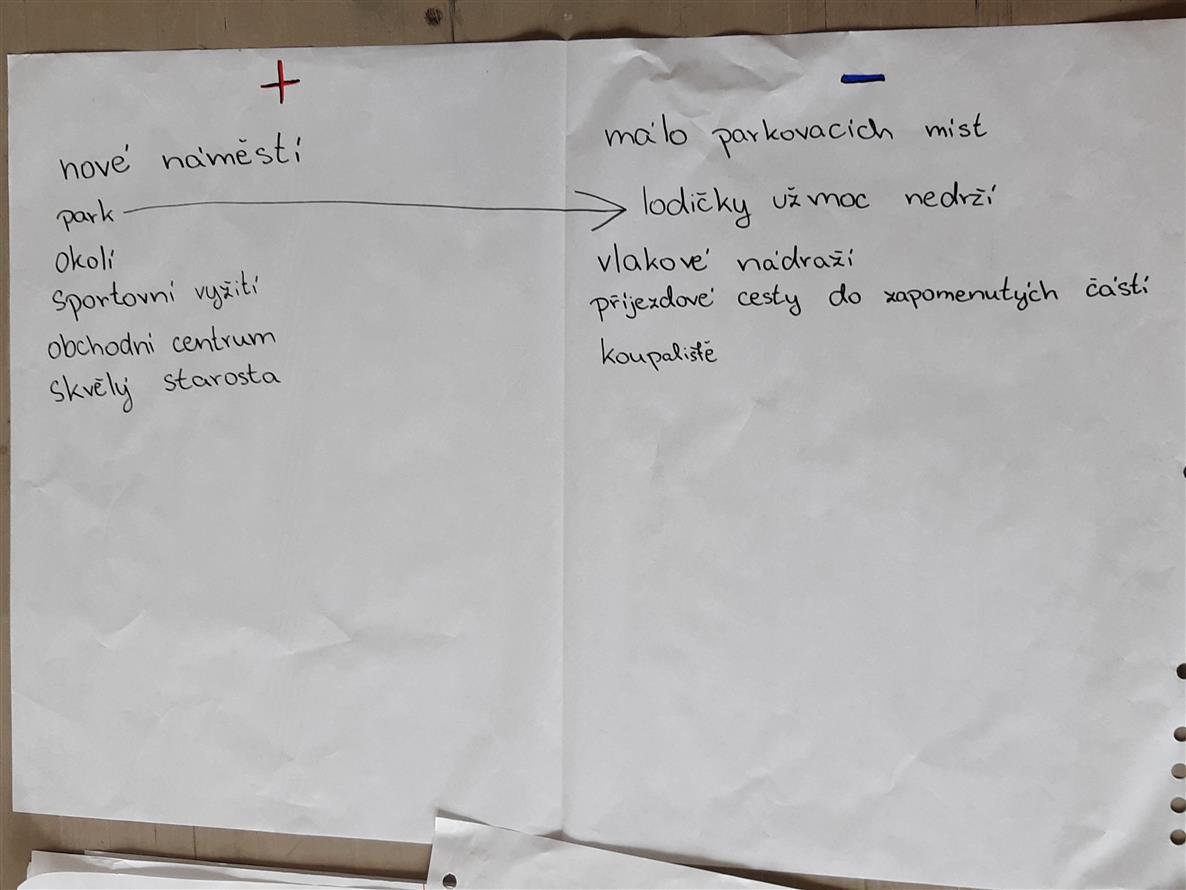 +
nové náměstí
park
okolí
sportovní vyžití
obchodní centrum
skvělý starosta
–
málo parkovacích míst
lodičky už moc nedrží
vlakové nádraží
příjezdové cesty do zapomenutých částí
koupaliště